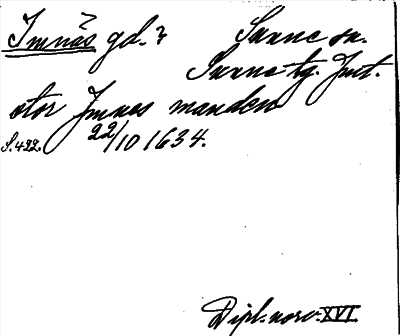 Imnäs gd.? Särne sn.
Särne tg. Jmt.
otor Jmnes manden
S. 422. 22/10 1634.
Dipl. norv. XVI.